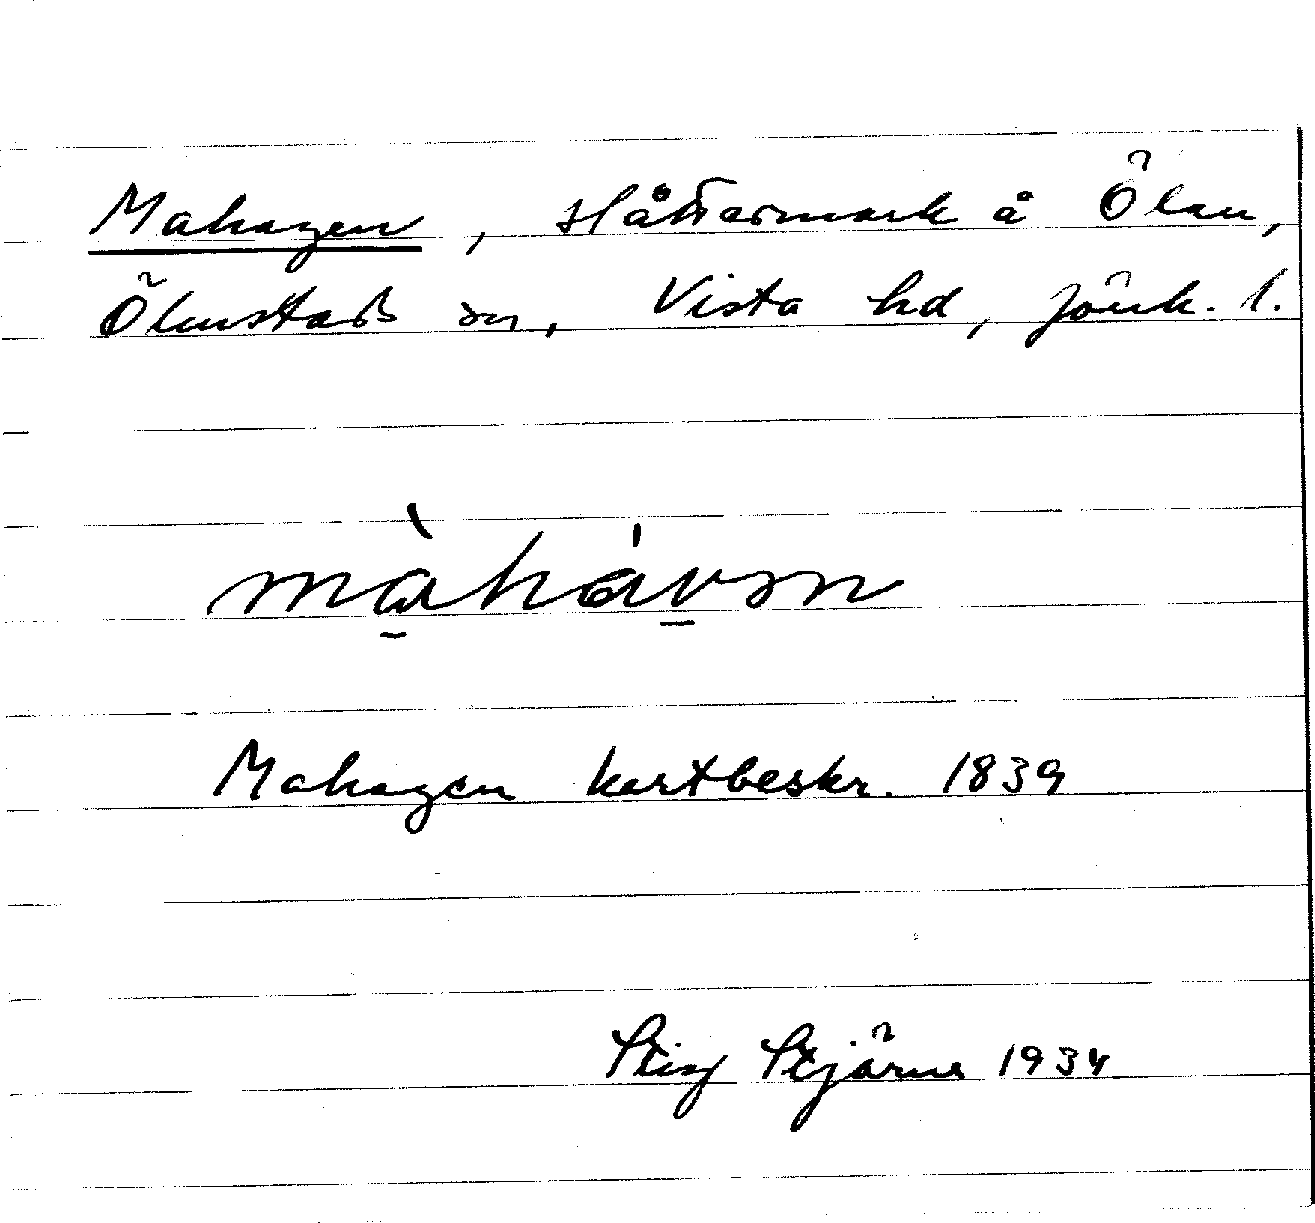 Mahagen, slåttermark å Ölan,
Ölmstads sn, Vista hd, Jönk. l.
màhávən
Mahagen kartbeskr. 1839
Stig Stjärne 1934